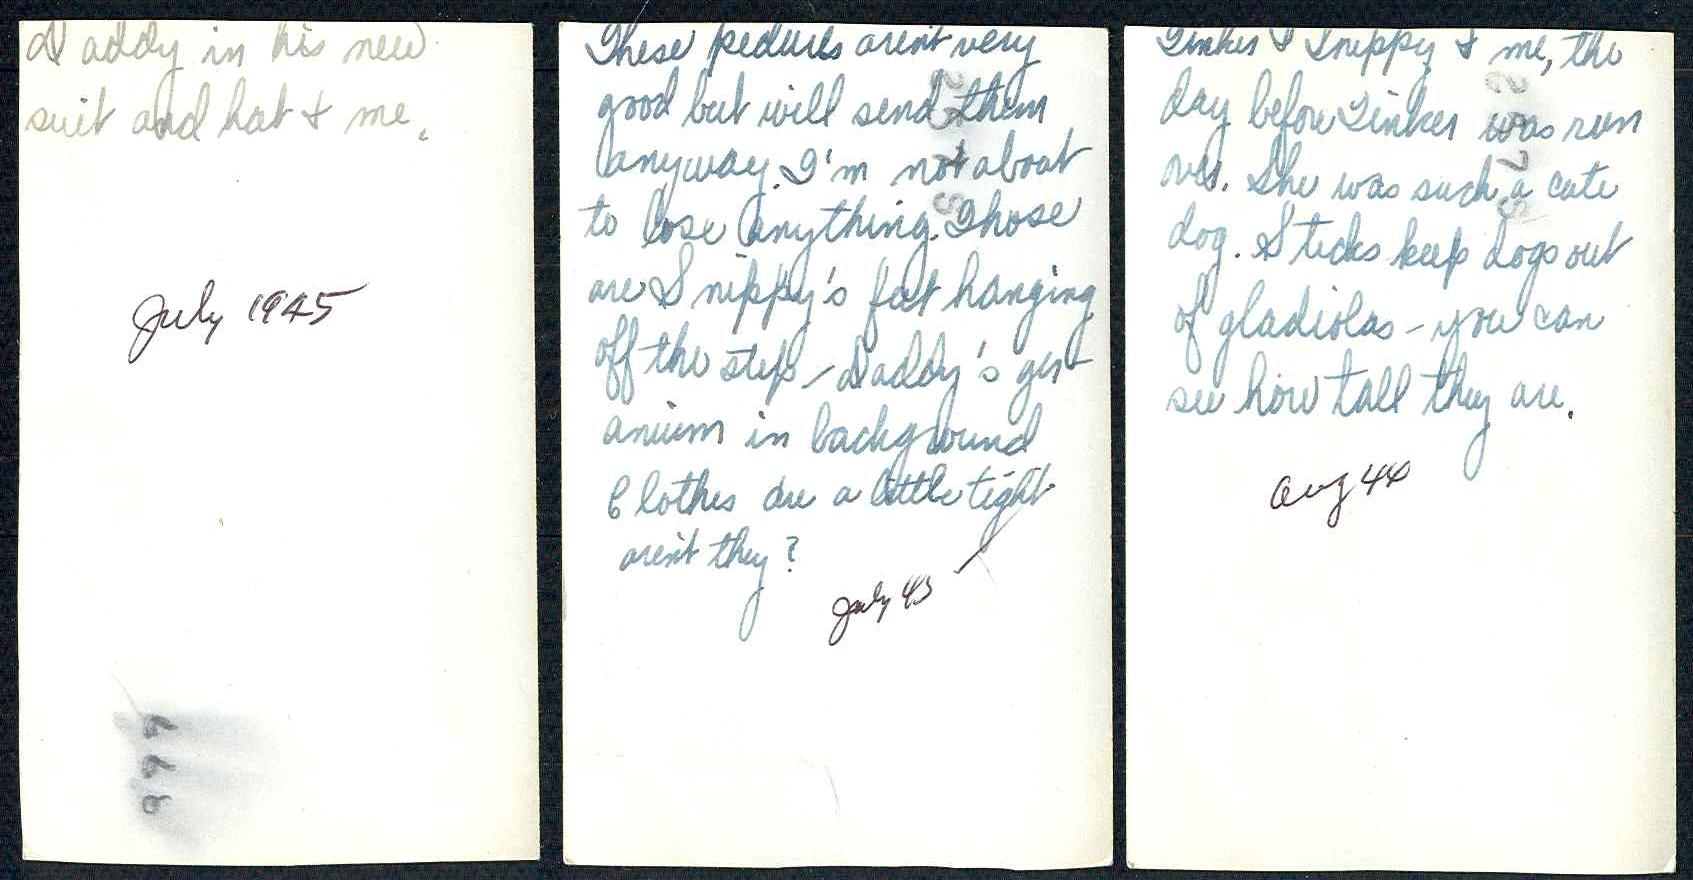 Daddy in his new
suit and hat & me.
July 1945
These pictures aren't very
good but will send them
anyway. I'm not about
to lose anything. Those
are Snippy's feet hanging
off the step - Daddy's ger
anium in background
Clothes are a little tight
aren't they?
July 45
Tinker & Snippy & me, the
day before Tinker was run
over. She was such a cute
dog. Sticks keep dogs out
of gladiolas - you can
see how tall they are.
Aug 44